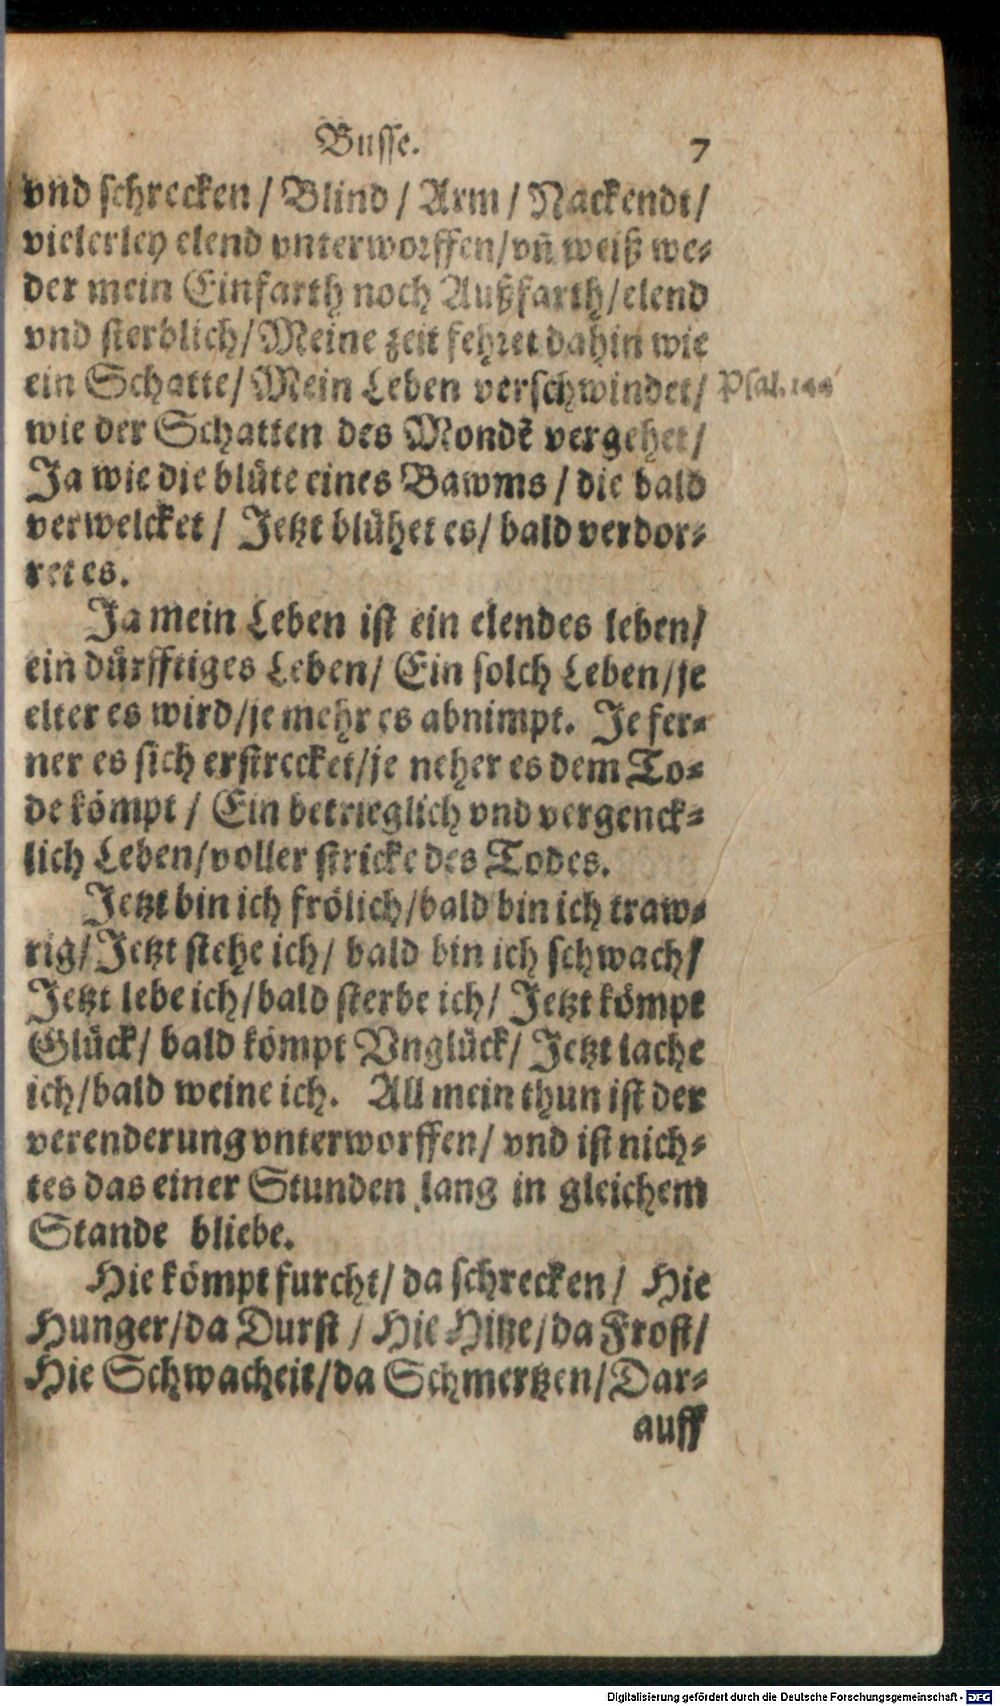 Busse. 7
vnd schrecken / Blind / Arm / Nackendt /
vielerley elend vnterworffen / vñ weiß we-
der mein Einfarth noch Außfarth / elend
vnd sterblich / Meine zeit fehret dahin wie
ein Schatte / Mein Leben verschwindet / Psal. 144
wie der Schatten des Mondẽ vergehet /
Ja wie die blüte eines Bawms / die bald
verwelcket / Jetzt blühet es / bald verdor-
ret es.
Ja mein Leben ist ein elendes leben /
ein dürfftiges Leben / Ein solch Leben / je
elter es wird / je mehr es abnimpt. Je fer-
ner es sich erstrecket / je neher es dem To-
de kömpt / Ein betrieglich vnd vergenck-
lich Leben / voller stricke des Todes.
Jetzt bin ich frölich / bald bin ich traw-
rig / Jetzt stehe ich / bald bin ich schwach /
Jetzt lebe ich / bald sterbe ich / Jetzt kömpt
Glück / bald kömpt Vnglück / Jetzt lache
ich / bald weine ich. All mein thun ist der
verenderung vnterworffen / vnd ist nich-
tes das einer Stunden lang in gleichem
Stande bliebe.
Hie kömpt furcht / da schrecken / Hie
Hunger / da Durst / Hie Hitze / da Frost /
Hie Schwacheit / da Schmertzen / Dar-
auff
Digitalisierung gefördert durch die Deutsche Forschungsgemeinschaft - DFG